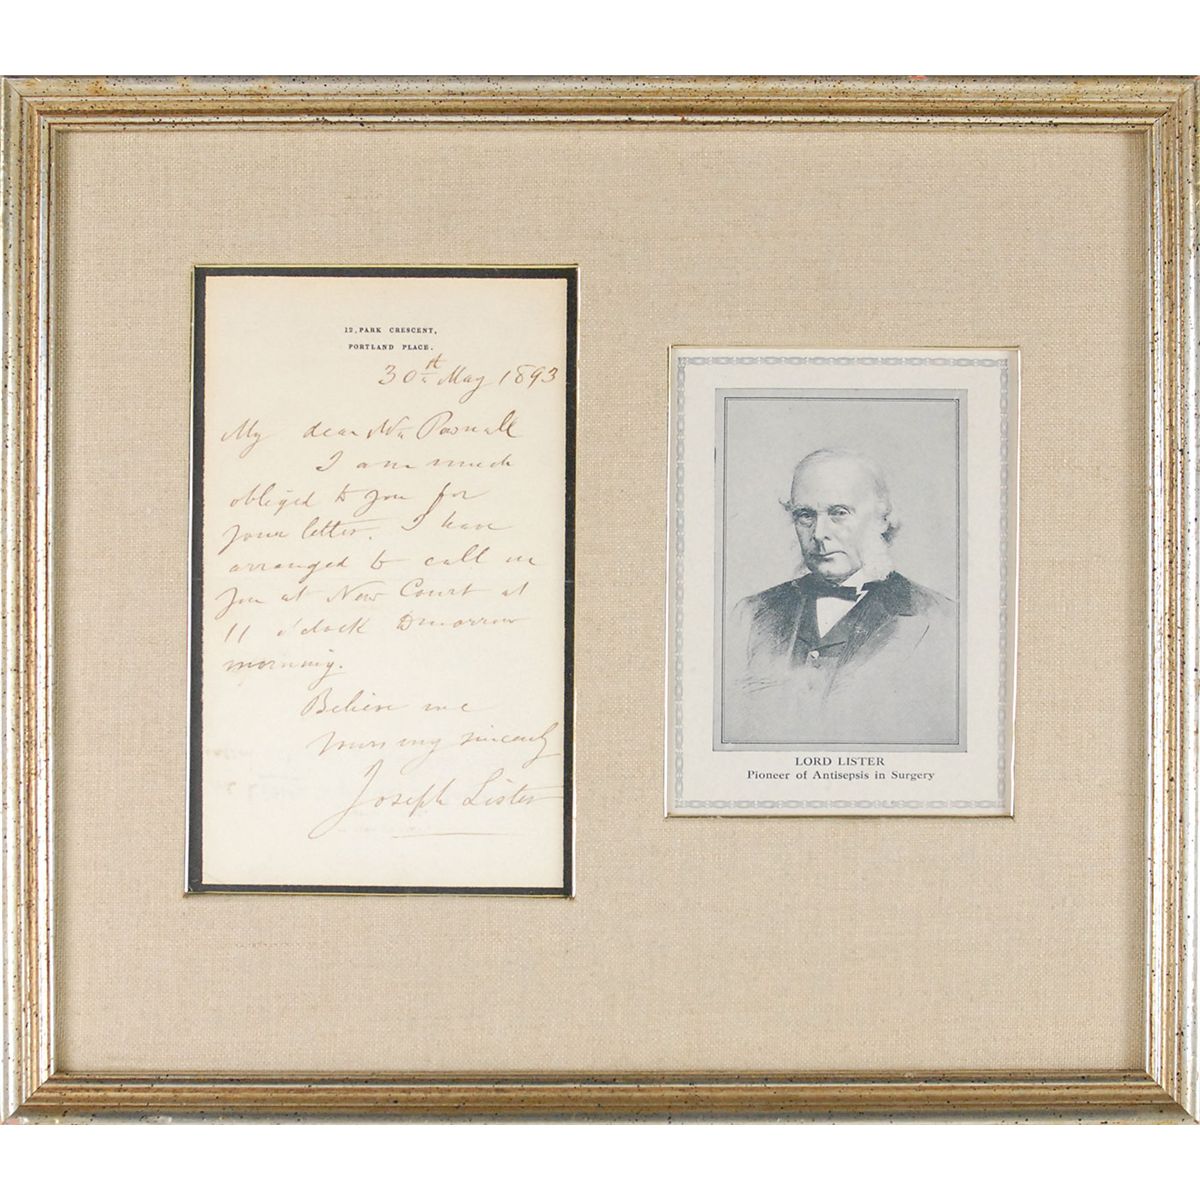 12, PARK CRESCENT,
PORTLAND PLACE.
30th May 1893
My dear Mr
I am much
obliged to you for
your letter. I have
arranged to call on
you at New Court at
11 o'clock tomorrow
morning.
Believe me
sincerely
Joseph Lister
LORD LISTER
Pioneer of Antisepsis in Surgery